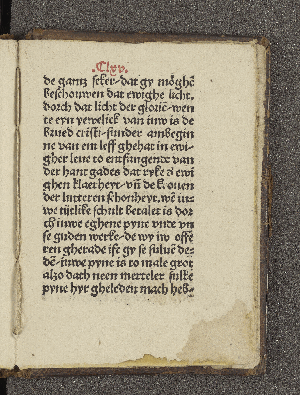 .Clxv.
de gantz seker· dat gy möghē
beschouwen dat ewighe licht.
dorch dat licht der glorië· wen
te eyn yewelick van iuw is de
brued cristi· sunder ambegin
ne van em leff ghehat in ewi-
gher leue to entfangende van
der hant gades dat ryke d' ewi
ghen klaerheyt· vñ de kronen
der lutteren schonheyt. wē iu-
we tijtlike schult betalet is dor
ch iuwe eghene pyne vnde vn
se guden werke· de wy iw offe
ren gherade ift gy se suluē de-
dē· iuwe pyne is to male grot
alzo dath neen merteler sulke
pyne hyr gheleden mach heb-